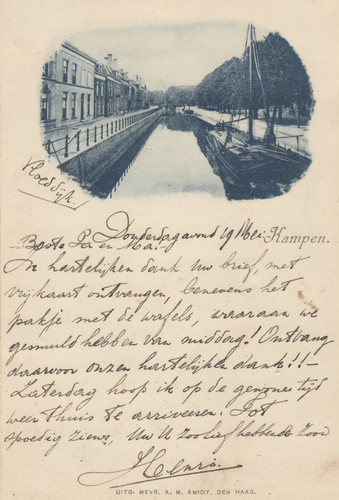 Vloeddijk!
Donderdagavond 19 Mei.
Kampen.
Beste Pa en Ma!
In hartelijken dank Uw brief, met
vrijkaart ontvangen, benevens het
pakje met de wafels, waaraan we
gesmuld hebben van middag! Ontvang
daarvoor onzen hartelijken dank!!-
Zaterdag hoop ik op de gewone tijd
weer thuis te arriveeren. Tot
spoedig ziens, Uw U zooliefhebbende Zoon
Henri.
UITG. MEVR. A. M. AMIOT, DEN HAAG.